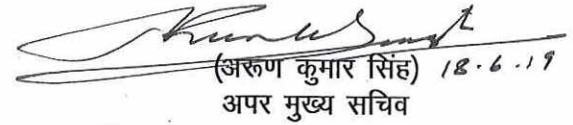 (अरूण कुमार सिंह) 18.6.19
अपर मुख्य सचिव